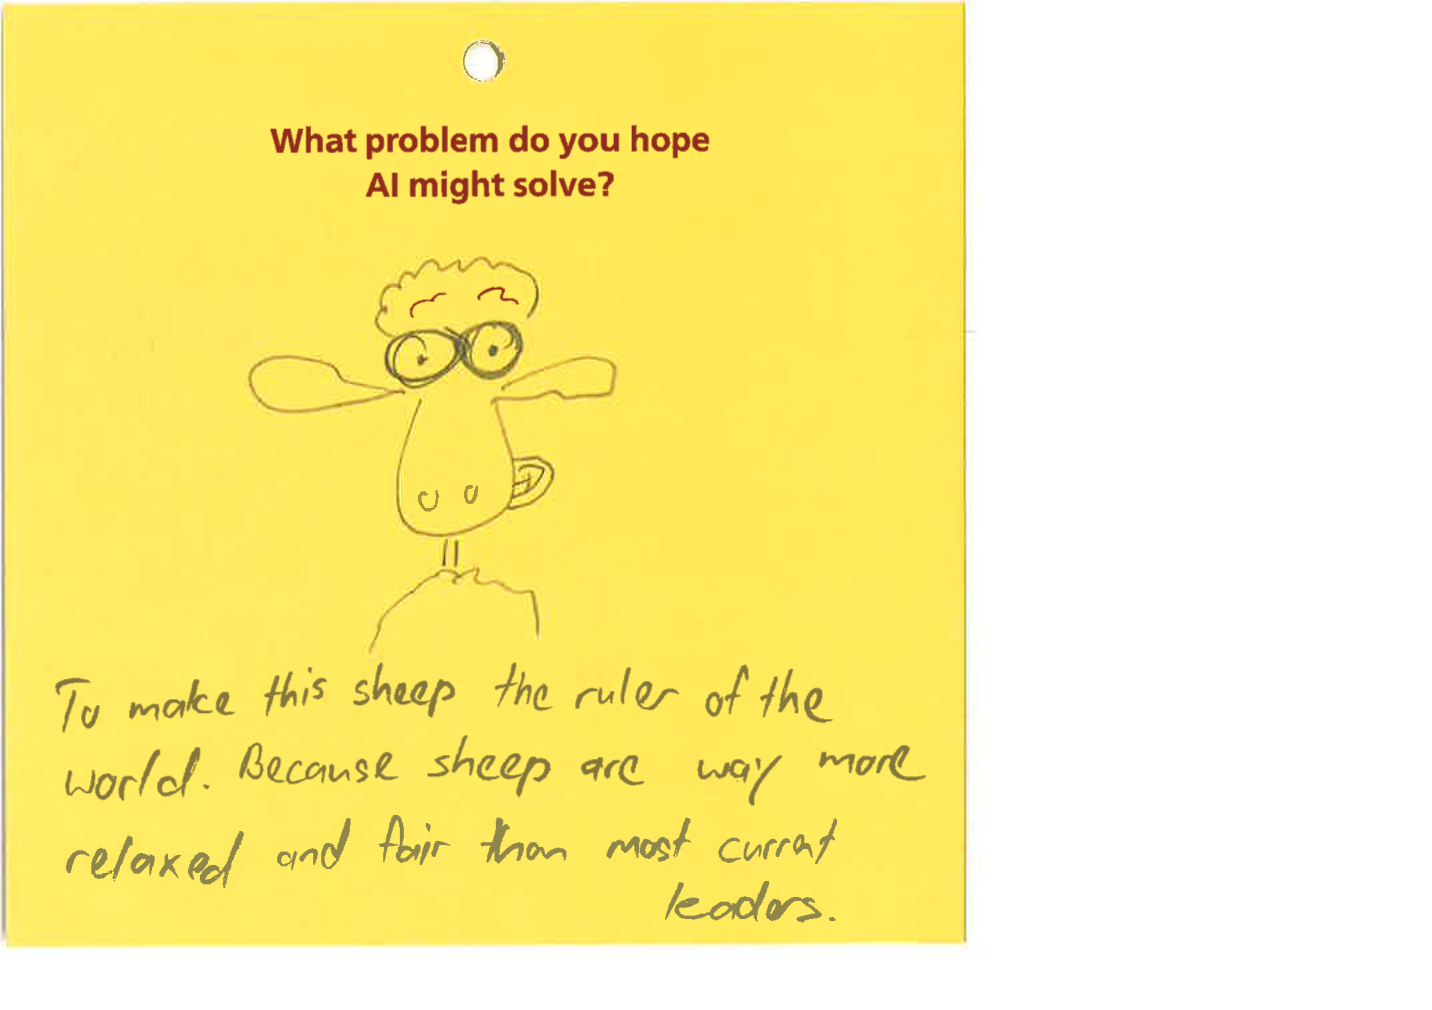 What problem do you hope
AI might solve?
To make this sheep the ruler of the
world. Because sheep are way more
relaxed and fair than most current
leaders.